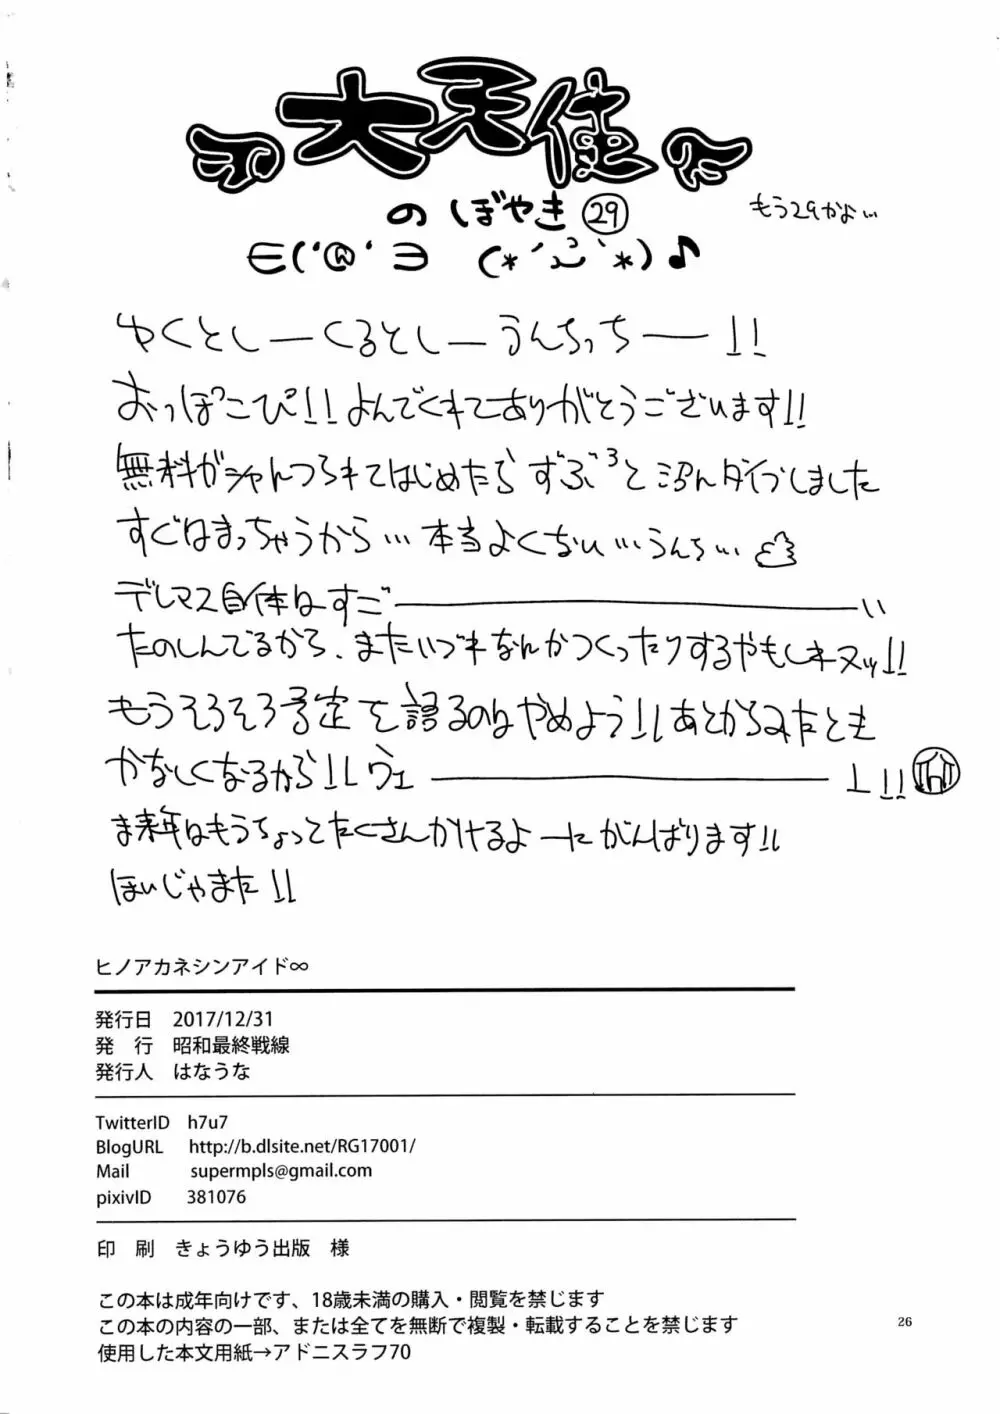 大天使
のぼやき㉙
もう29かよ…
∈('@'∋ (*´ω`*)♪
ゆくとしーくるとしーうんちっちー!!
おっぽこぴ!!よんでくれてありがとうございます!!
無料ガシャんつられてはじめたらずぶ3と沼んダイブしました
すぐはまっちゃうから…本当よくない…うんち…
デレマス自体はすご――い
たのしんでるから、またいづれなんかつくったりするやもしれヌッ!!
もうそろそろ予定を語るのはやめよう!!あとからみたとき
かなしくなるから!!ヴェ――!!
ま来年はもうちょってたくさんかけるよーにがんばります!!
ほいじゃまた!!
ヒノアカネシンアイド∞
発行日 2017/12/31
発 行 昭和最終戦線
発行人 はなうな
TwitterID h7u7
BlogURL http://b.dlsite.net/RG17001/
Mail supermpls@gmail.com
pixivID 381076
印 刷 きょうゆう出版 様
この本は成年向けです、18歳未満の購入・閲覧を禁じます
この本の内容の一部、または全てを無断で複製・転載することを禁じます
使用した本文用紙→アドニスラフ70
26